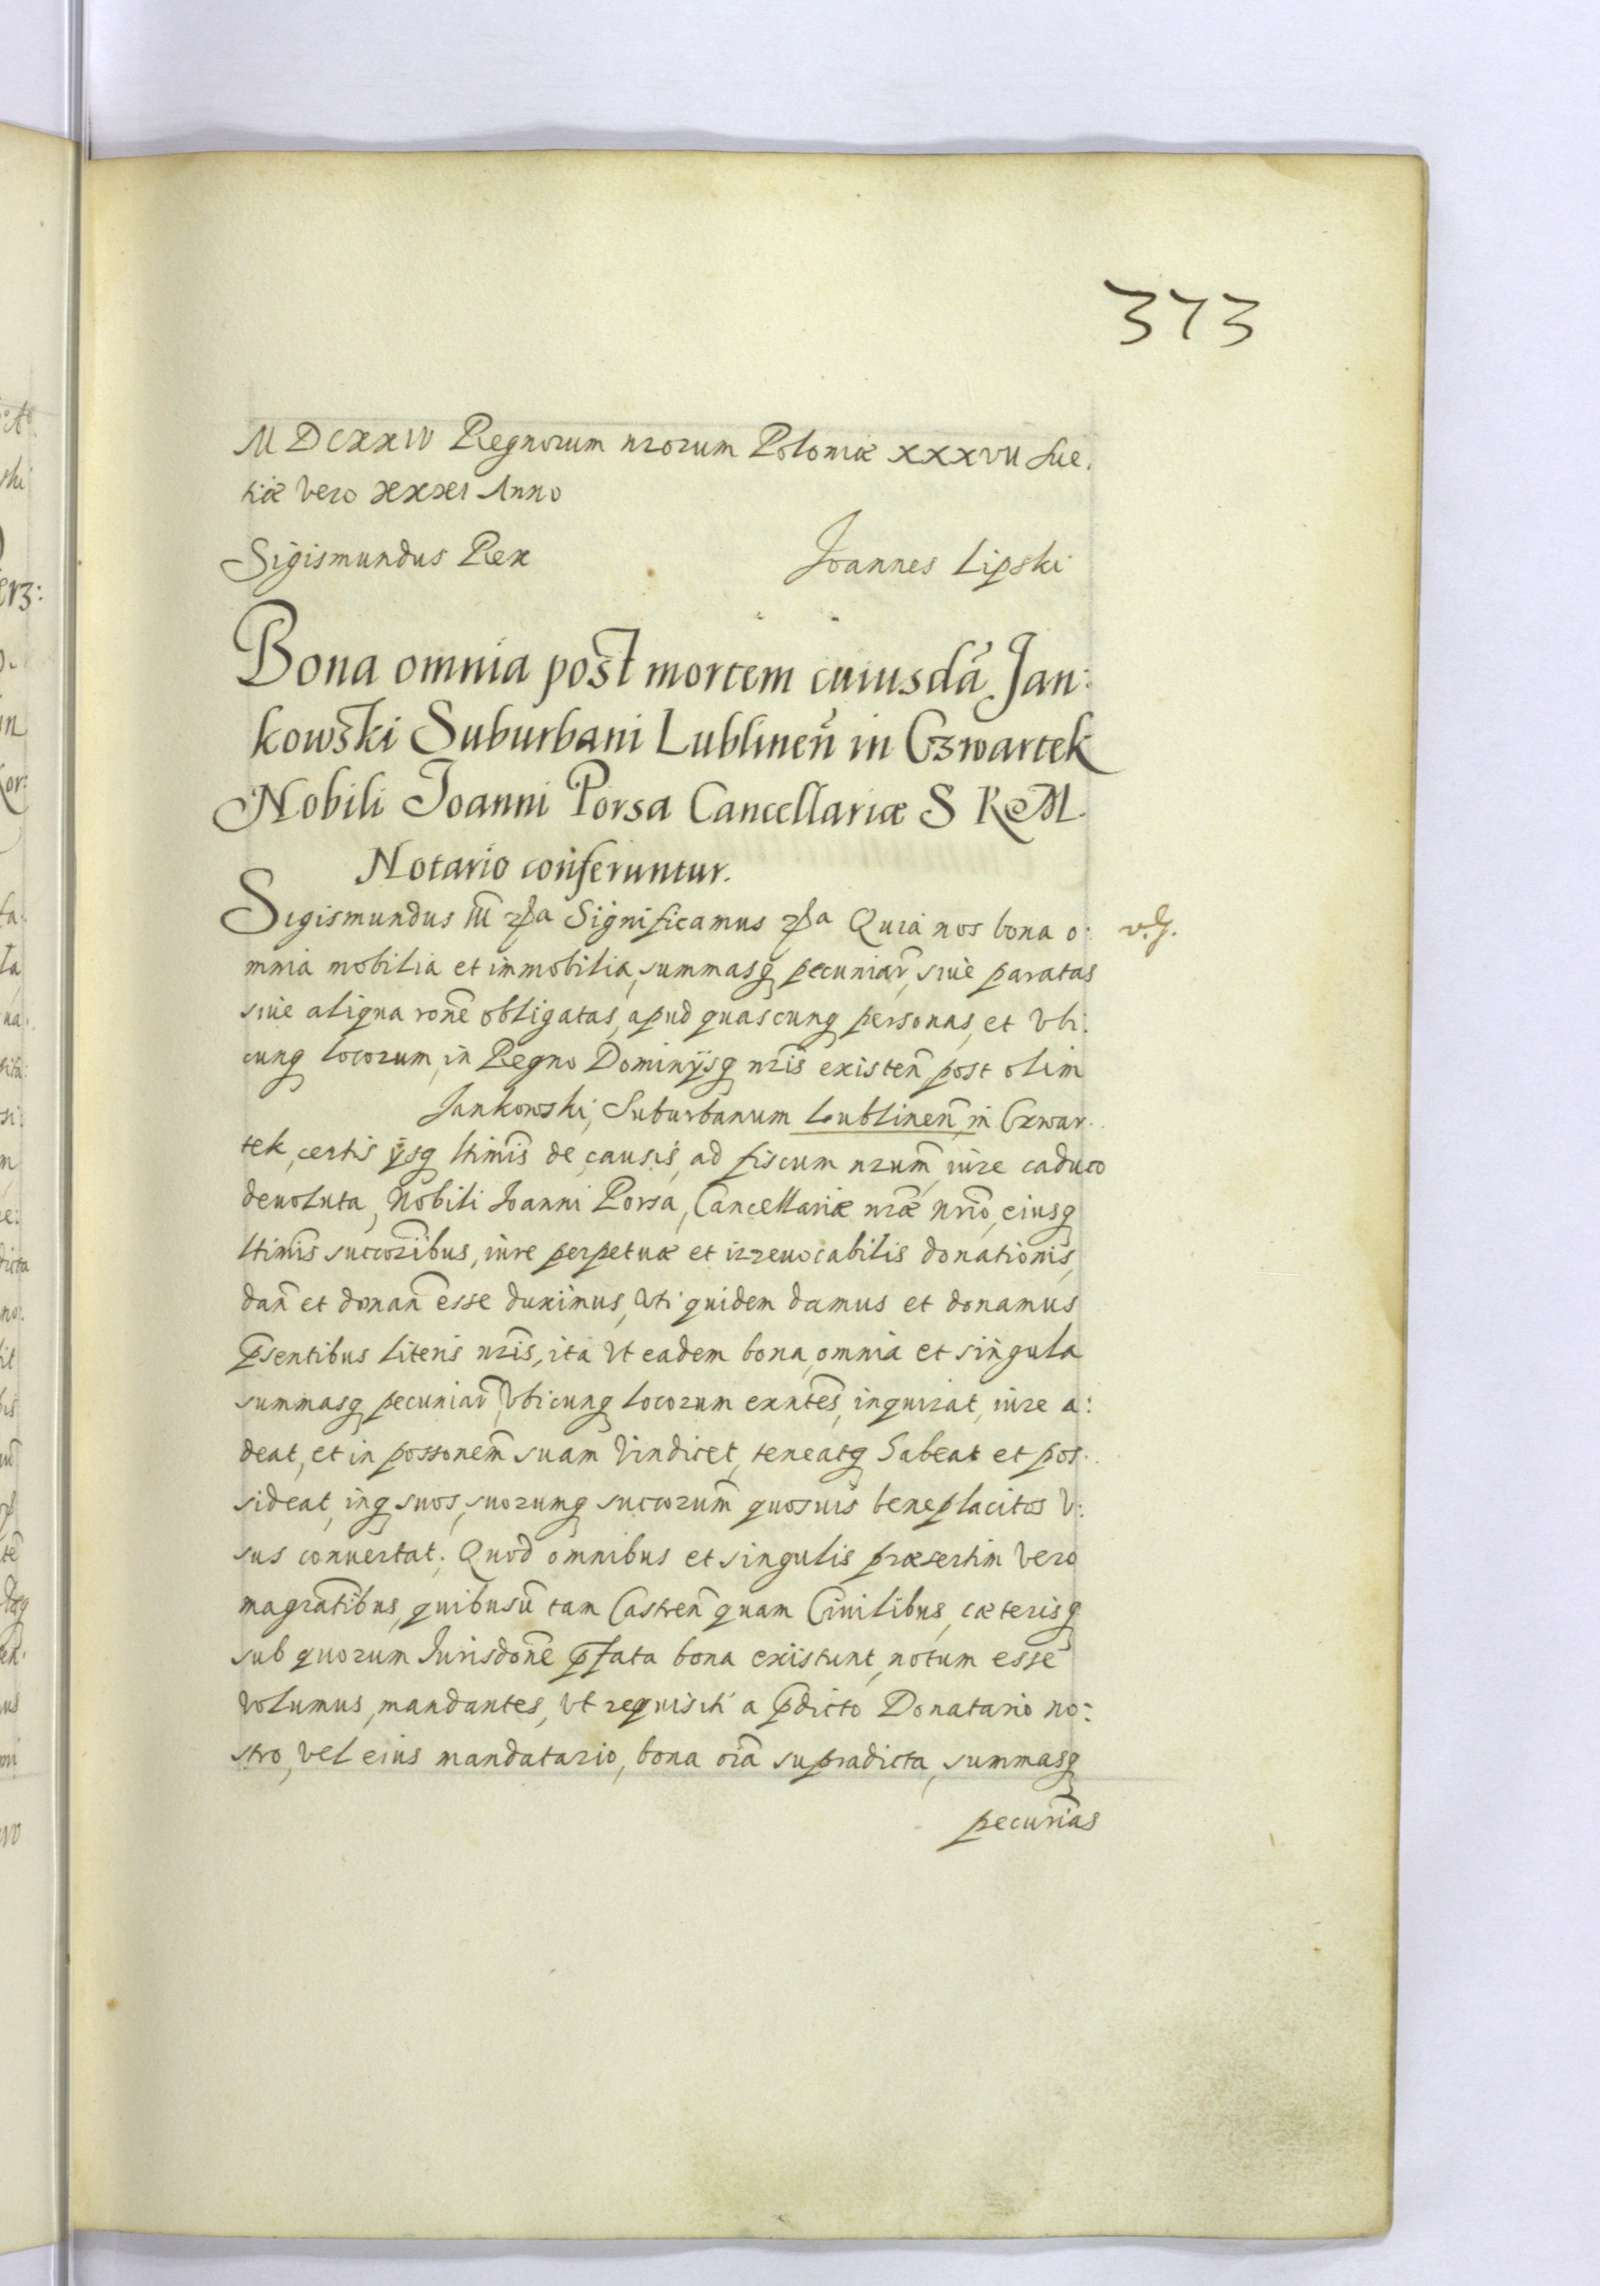 373
MDCXXIV Regnorum nrorum Poloniæ XXXVII Sue.
tiæ vero XXXI Anno
Sigismundus Rex Joannes Lipski
Bona omnia post mortem cuiusdã Jan:
kowski Suburbani Lublineñ in Czwartek
Nobili Joanni Porsa Cancellariæ S R M.
Notario conferuntur.
Sigismundus III Significamus Quia nos bona o: v. g.
mnia mobilia et immobilia, summasq pecuniar̃, siue paratas
siue aliqua rone obligatas, apud quascunq personas, et vbi.
cunq locorum, in Regno Dominijsq nris existeñ post olim
Jankowski, Suburbanum Lublineñ in Czwar.
tek, certis ijsq ltimis de causis, ad fiscum nrum, iure caduco
deuoluta, Nobili Joanni Porsa, Cancellariæ nræ nrio, eiusq
ltimis succoribus, iure perpetuæ et irreuocabilis donationis,
dañ et donañ esse duximus, vti quidem damus et donamus
pसentibus literis nris, ita vt eadem bona, omnia et singula
summasq pecuniar̃, vbicunq locorum exntes, inquirat, iure a:
deat, et in possonem suam vindicet, teneatq habeat et pos.
sideat, inq suos, suorumq succorum quosuis beneplacitos v:
sus conuertat. Quod omnibus et singulis præsertim vero
magratibus, quibusũ tam Castreñ quam Ciuilibus, cæterisq
sub quorum Jurisdone pfata bona existunt, notum esse
volumus, mandantes, vt requisiti a pdicto Donatario no:
stro, vel eius mandatario, bona oia supradicta, summasq
pecunias